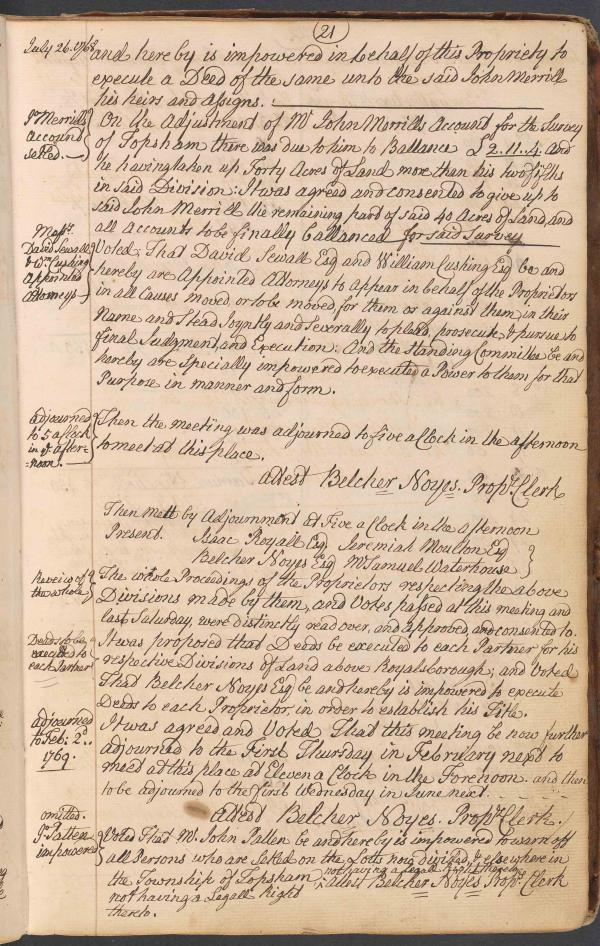 (21)
July 26. 1768
and hereby is impowered in behalf of this Propriety to
execute a Deed of the same unto the said John Merrill
his heirs and assigns.
Jn Merrills
Accound
setled.
On the Adjustment of Mr John Merrills Accound for the Survey
of Topsham there was due to him to Ballance £2.11.4. And
he having taken up Forty Acres of Land more then his two fifths
in said Division: It was agreed and consented to give up to
said John Merrill the remaining part of said 40 Acres of Land, and
all Accounts to be finally ballanced for said Survey
Messrs.
David Sewall
& Wm Cushing
Appointed
Attorneys
Voted, That David Sewall Esq and William Cushing Esq be and
hereby are Appointed Attorneys to appear in behalf of the Proprietors
in all Causes moved or to be moved, for them or against them, in their
Name and Stead Joyntly and Severally to plead, prosecute, & pursue to
final Judgment, and Execution: And the Standing Committee be and
hereby are Specially impowered to executed a Power to them for that
Purpose in manner and form.
adjourned
to 5 a Clock
in ye after-
-noon.
Then the meeting was adjourned to five a Clock in the afternoon
to meet at this place.
attest Belcher Noyes. Propr. Clerk
Then mett by Adjournment at Five a Clock in the afternoon
Present. Isaac Royall Esq Jeremiah Moulton Esq
Belcher Noyes Esq Mr Samuel Waterhouse
Reveiw of
the whole
The whole Proceedings of the Proprietors respecting the above
Divisions made by them, and Votes passed at this meeting and
last Saturday, were distinctly read over, and approved, and consented to.
Deeds to be
executed to
each Partner
It was proposed that Deeds be executed to each Partner for his
respective Divisions of Land above Royalsborough; and Voted
That Belcher Noyes Esq be and hereby is impowered to execute
Deeds to each Proprietor, in order to establish his Title.
adjourned
to Feb: 2d.
1769.
It was agreed and Voted That this meeting be now further
adjourned to the First Thursday in February next to
meet at this place at Eleven a Clock in the Forenoon. and then
to be adjourned to the first Wednesday in June next.
Attest Belcher Noyes. Propr. Clerk.
omitted.
Jn Patten
impowered
Voted That Mr. John Patten be and hereby is impowered to warn off
all Persons who are Setled on the Lotts now divided, & elsewhere in
not having a Legall Right thereto
the Township of Topsham attest Belcher Noyes Propr. Clerk
not having a Legall Right
thereto.